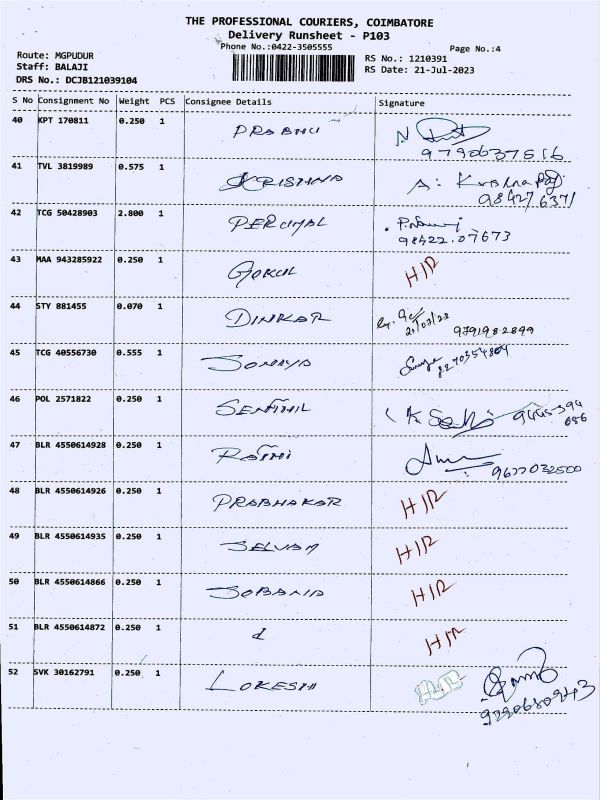 THE PROFESSIONAL COURIERS, COIMBATORE
Delivery Runsheet - P103
Phone No.:0422-3505555
Page No.:4
Route: MGPUDUR
Staff: BALAJI
DRS No.: DCJB121039104
RS No.: 1210391
RS Date: 21-Jul-2023
S No Consignment No Weight PCS Consignee Details Signature
40 KPT 170811 0.250 1 PRABHU
9790637516
41 TVL 3819989 0.575 1 KRISHNA A: Krishna
98427 6371
42 TCG 50428903 2.800 1 PERUMAL
98422.07673
43 MAA 943285922 0.250 1 GOKUL HIR
44 STY 881455 0.070 1 DINKAR
21/07/23 9791982899
45 TCG 40556730 0.555 1
8270354809
46 POL 2571822 0.250 1 SENTHIL
9445394
686
47 BLR 4550614928 0.250 1 RATHI
9677032500
48 BLR 4550614926 0.250 1 PRABHAKAR HIR
49 BLR 4550614935 0.250 1 SELVAM HIR
50 BLR 4550614866 0.250 1 SOBANA HIR
51 BLR 4550614872 0.250 1 d HIR
52 SVK 30162791 0.250 1 LOKESH